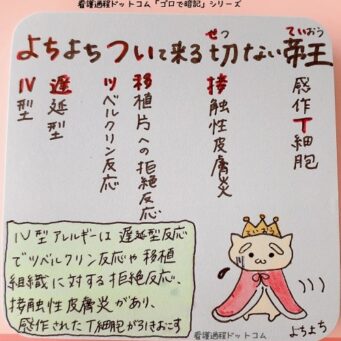 看護過程ドットコム「ゴロで暗記」シリーズ
よちよちついて来る切ない帝王
せつ
ていおう
IV型
遅延型
ツベルクリン反応
移植片への拒絶反応
接触性皮膚炎
感作T細胞
IV型アレルギーは遅延型反応
でツベルクリン反応や移植
組織に対する拒絶反応、
接触性皮膚炎があり、
感作されたT細胞が引きおこす
看護過程ドットコム
よちよち